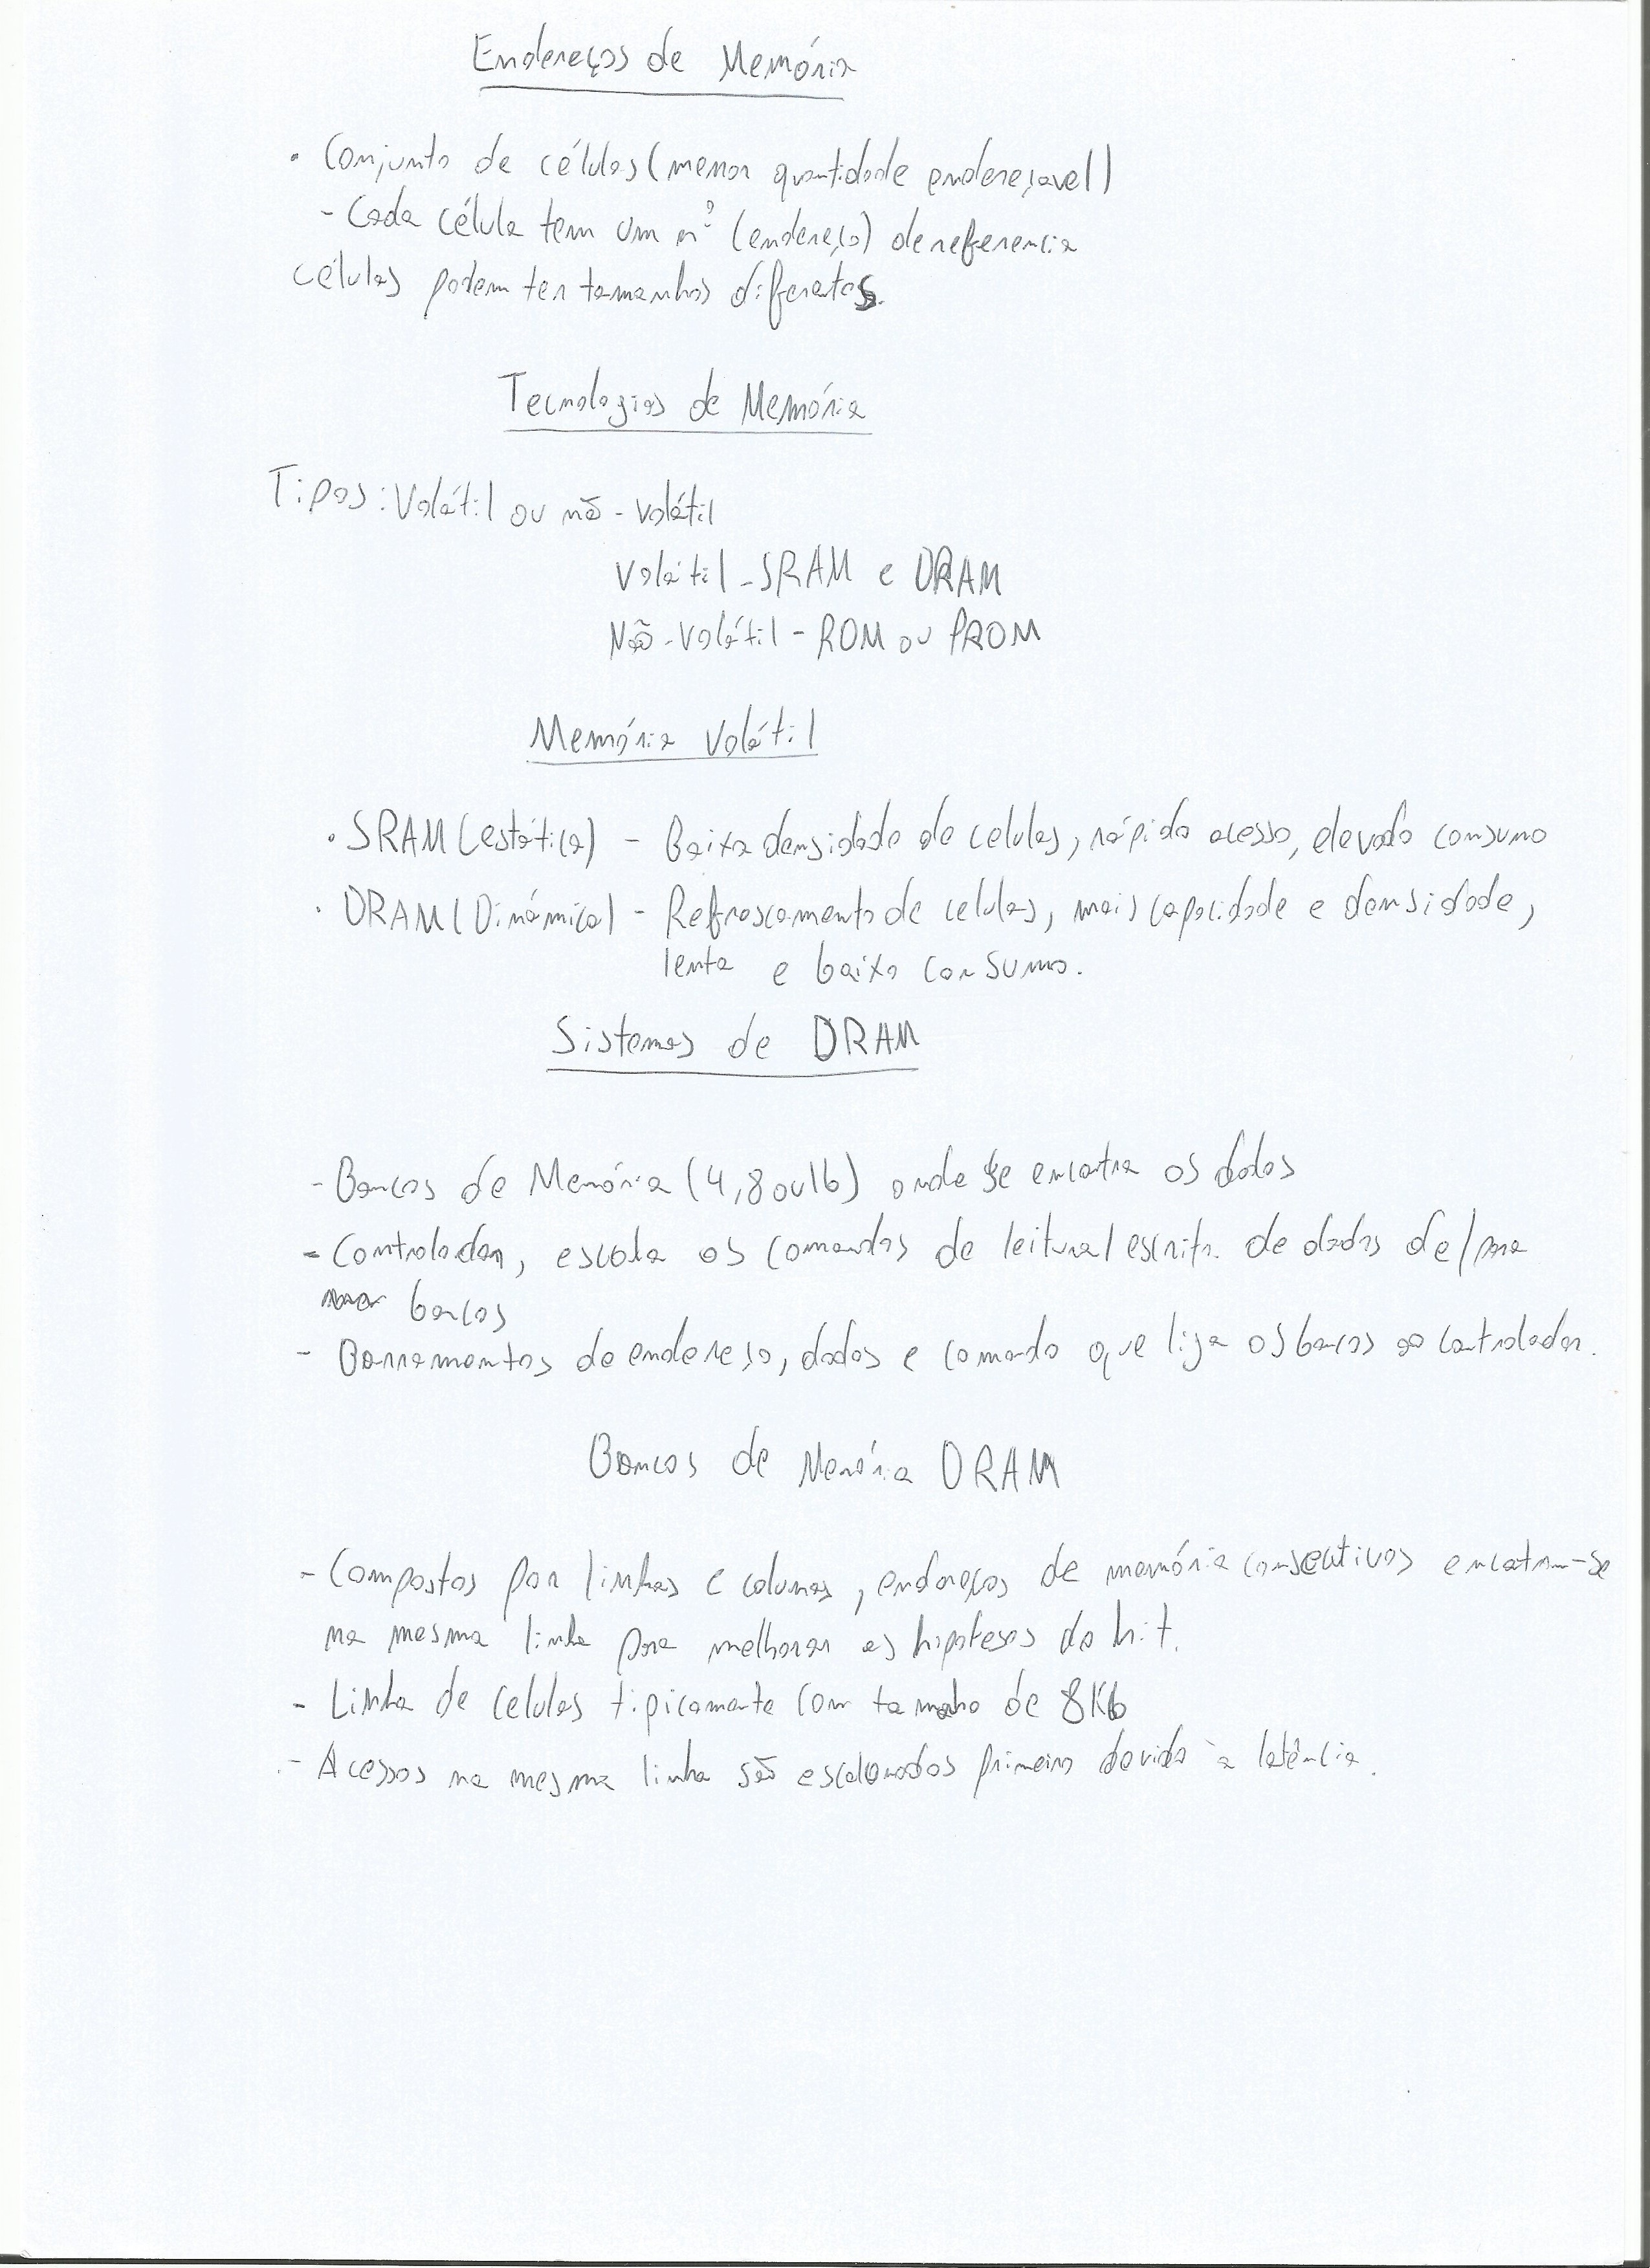 Endereços de Memória
• Conjunto de células (menor quantidade endereçavel)
- Cada célula tem um nº (endereço) de referencia
células podem ter tamanhos diferentes.
Tecnologias de Memória
Tipos: Volátil ou não-volátil
Volátil - SRAM e DRAM
Não-Volátil - ROM ou PROM
Memória Volátil
• SRAM (estática) - Baixa densidade de celulas, rápido acesso, elevado consumo
• DRAM (Dinámica) - Refrescamento de celulas, mais capacidade e densidade,
lenta e baixo consumo.
Sistemas de DRAM
- Bancos de Memória (4,8 ou 16) onde se encontra os dados
- Controlador, os comandos de leitura/escrita de dados de/para
bancos
- Barramentos de endereço, dados e comando que liga os bancos ao controlador.
Bancos de Memória DRAM
- Compostos por linhas e colunas, endereços de memória consecutivos encontram-se
na mesma linha para melhorar as hipoteses do hit.
- Linha de celulas tipicamente com tamanho de 8Kb
- Acessos na mesma linha são escalonados primeiro devido à latência.